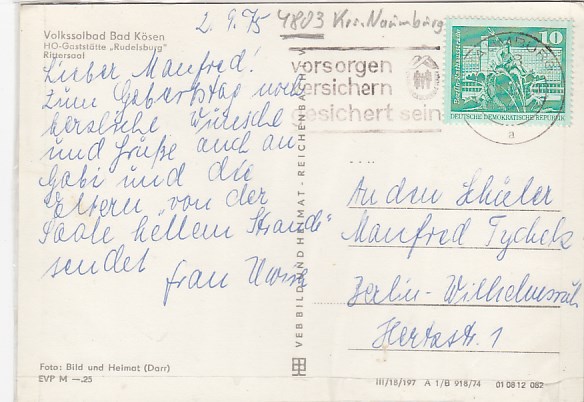 2. 9. 75 4803 Krs. Naumburg
Volkssolbad Bad Kösen
HO-Gaststätte „Rudelsburg"
Rittersaal
Lieber Manfred!
Zum Geburtstag noch
herzliche Wünsche
und Grüße auch an
Gabi und die
Eltern „von der
Saale hellem Strande"
sendet
Frau
vorsorgen
versichern
gesichert sein
NAUMBURG
a
10
Berlin, Neptunbrunnen
DEUTSCHE DEMOKRATISCHE REPUBLIK
VEB BILD UND HEIMAT · REICHENBACH
An den Schüler
Manfred
Berlin-Wilhelmsruh
Hertastr. 1
Foto: Bild und Heimat (Darr)
EVP M —.25
III/18/197 A 1/B 918/74 01 08 12 082